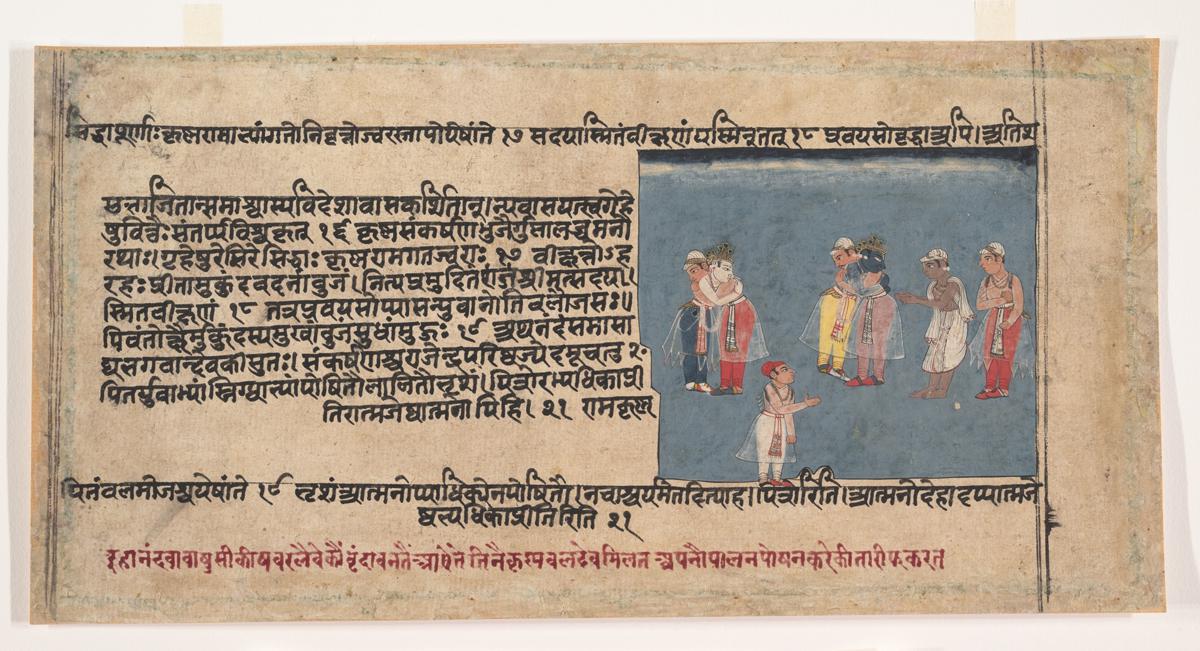 सिद्धाः पूर्णाः कृष्णरामाभ्यांगतो निवृत्तो ज्वरस्तापो येषां ते १७ सदयस्मितंवीक्षणं यस्मिन् तत् १८ प्रवयसो वृद्धा अपि। अतिश
सभाजितान्समाश्वास्य विदेशावासकर्शितान्। न्यवासयत्स्वगेहे
षुवित्तैः संतर्प्य विश्वकृत् १६ कृष्णसंकर्षणभुजैर्गुप्तालब्धमनो
रथाः। गृहेषुरेमिरेसिद्धाः कृष्णरामगतज्वराः १७ वीक्षंतोऽह
रहः प्रीतामुकुंदवदनांबुजं। नित्यंप्रमुदितं श्रीमत्सदय।
स्मितवीक्षणं १८ तत्रप्रवयसोप्यासन्युवानोतिबलौजसः॥
पिबंतोक्षैर्मुकुंदस्यमुखांबुजसुधांमुहुः १९ अथनंदंसमासा
द्यभगवान्देवकीसुतः। संकर्षणश्चराजेन्द्रपरिष्वज्येदमूचतुः २०
पितर्युवाभ्यां स्निग्धाभ्यांपोषितौलालितौभृशं। पित्रोरभ्यधिकाप्री
तिरात्मजेष्वात्मनोपिहि। २१ रामकृष्ण
यितंबलमोजश्च येषांते १९ भृशंआत्मनोप्यधिकत्वेनपोषितौ। नचाश्चर्यमेतदित्याह। पित्रोरिति। आत्मनोदेहादप्यात्मजे
ष्वभ्यधिकाप्रीतिरिति २१
बलदेवमिलत अपनौपालनपोषनकरेकीतारीफकरत